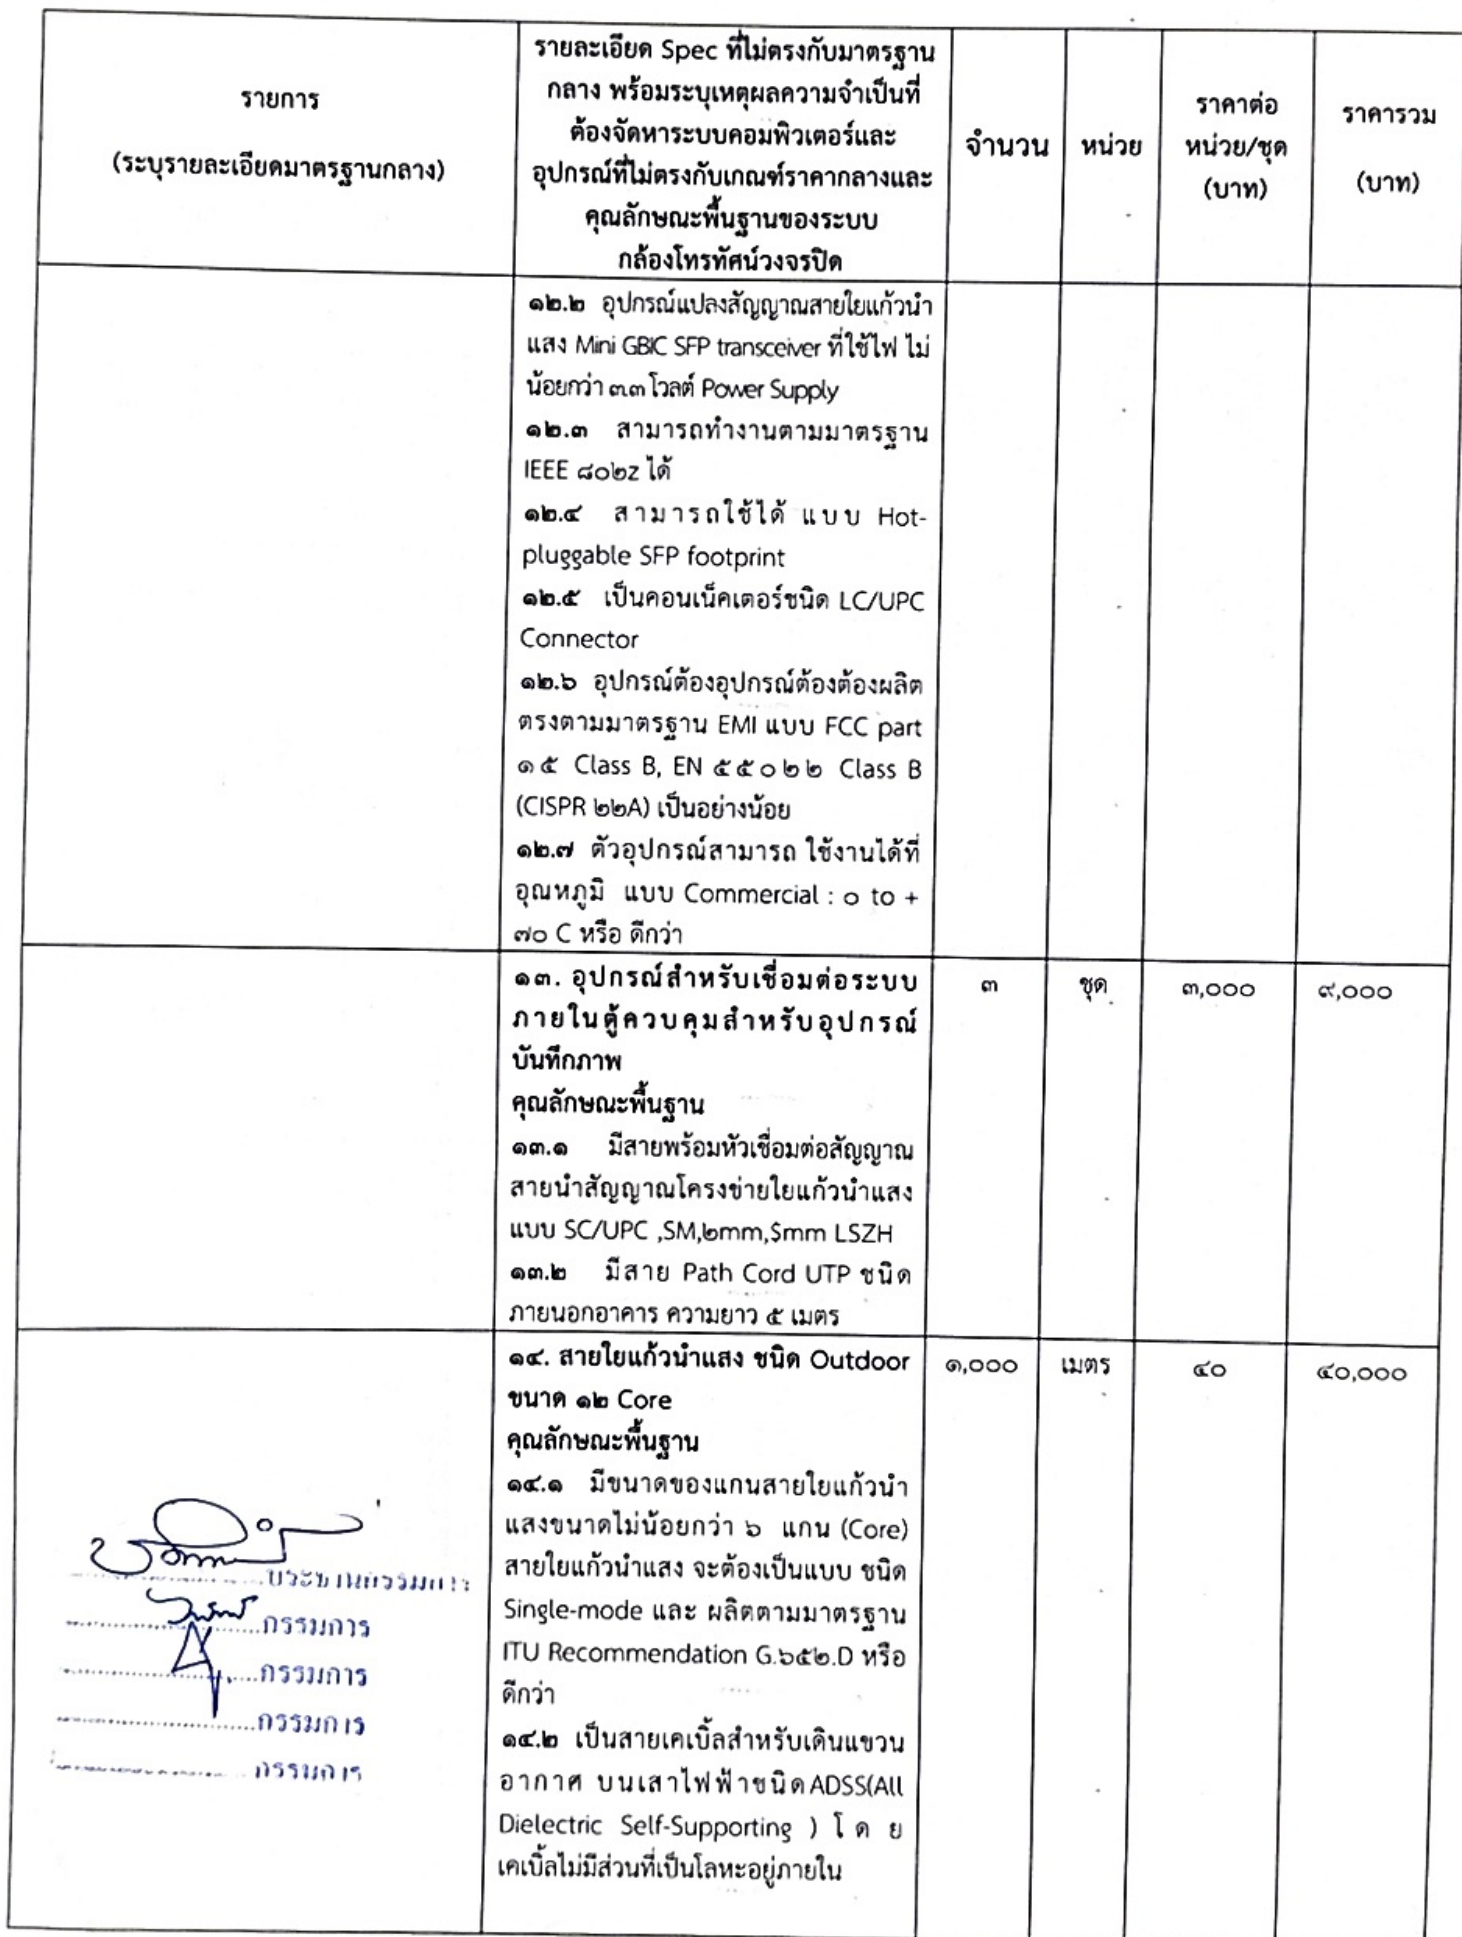 รายการ
(ระบุรายละเอียดมาตรฐานกลาง)
รายละเอียด Spec ที่ไม่ตรงกับมาตรฐาน
กลาง พร้อมระบุเหตุผลความจำเป็นที่
ต้องจัดหาระบบคอมพิวเตอร์และ
อุปกรณ์ที่ไม่ตรงกับเกณฑ์ราคากลางและ
คุณลักษณะพื้นฐานของระบบ
กล้องโทรทัศน์วงจรปิด
จำนวน
หน่วย
ราคาต่อ
หน่วย/ชุด
(บาท)
ราคารวม
(บาท)
๑๒.๒ อุปกรณ์แปลงสัญญาณสายใยแก้วนำ
แสง Mini GBIC SFP transceiver ที่ใช้ไฟ ไม่
น้อยกว่า ๓.๓ โวลต์ Power Supply
๑๒.๓ สามารถทำงานตามมาตรฐาน
IEEE ๘๐๒z ได้
๑๒.๔ สามารถใช้ได้ แบบ Hot-
pluggable SFP footprint
๑๒.๕ เป็นคอนเน็คเตอร์ชนิด LC/UPC
Connector
๑๒.๖ อุปกรณ์ต้องอุปกรณ์ต้องต้องผลิต
ตรงตามมาตรฐาน EMI แบบ FCC part
๑๕ Class B, EN ๕๕๐๒๒ Class B
(CISPR ๒๒A) เป็นอย่างน้อย
๑๒.๗ ตัวอุปกรณ์สามารถ ใช้งานได้ที่
อุณหภูมิ แบบ Commercial : ๐ to +
๗๐ C หรือ ดีกว่า
๑๓. อุปกรณ์สำหรับเชื่อมต่อระบบ
ภายในตู้ควบคุมสำหรับอุปกรณ์
บันทึกภาพ
๓
ชุด
๓,๐๐๐
๙,๐๐๐
คุณลักษณะพื้นฐาน
๑๓.๑ มีสายพร้อมหัวเชื่อมต่อสัญญาณ
สายนำสัญญาณโครงข่ายใยแก้วนำแสง
แบบ SC/UPC ,SM,๒mm,$mm LSZH
๑๓.๒ มีสาย Path Cord UTP ชนิด
ภายนอกอาคาร ความยาว ๕ เมตร
๑๔. สายใยแก้วนำแสง ชนิด Outdoor
ขนาด ๑๒ Core
๑,๐๐๐
เมตร
๔๐
๔๐,๐๐๐
คุณลักษณะพื้นฐาน
๑๔.๑ มีขนาดของแกนสายใยแก้วนำ
แสงขนาดไม่น้อยกว่า ๖ แกน (Core)
สายใยแก้วนำแสง จะต้องเป็นแบบ ชนิด
Single-mode และ ผลิตตามมาตรฐาน
ITU Recommendation G.๖๕๒.D หรือ
ดีกว่า
๑๔.๒ เป็นสายเคเบิ้ลสำหรับเดินแขวน
อากาศ บนเสาไฟฟ้าชนิดADSS(All
Dielectric Self-Supporting ) โดย
เคเบิ้ลไม่มีส่วนที่เป็นโลหะอยู่ภายใน
ประธานกรรมการ
กรรมการ
กรรมการ
กรรมการ
กรรมการ